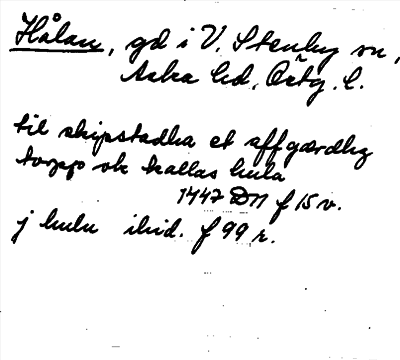 Hålan, gd i V. Stenby sn,
Aska hd, Östg. l.
til skipstadha et affgærdhz
torpp ok kallas hula
1447 DN f 15 v.
j hulu ibid. f 99 r.